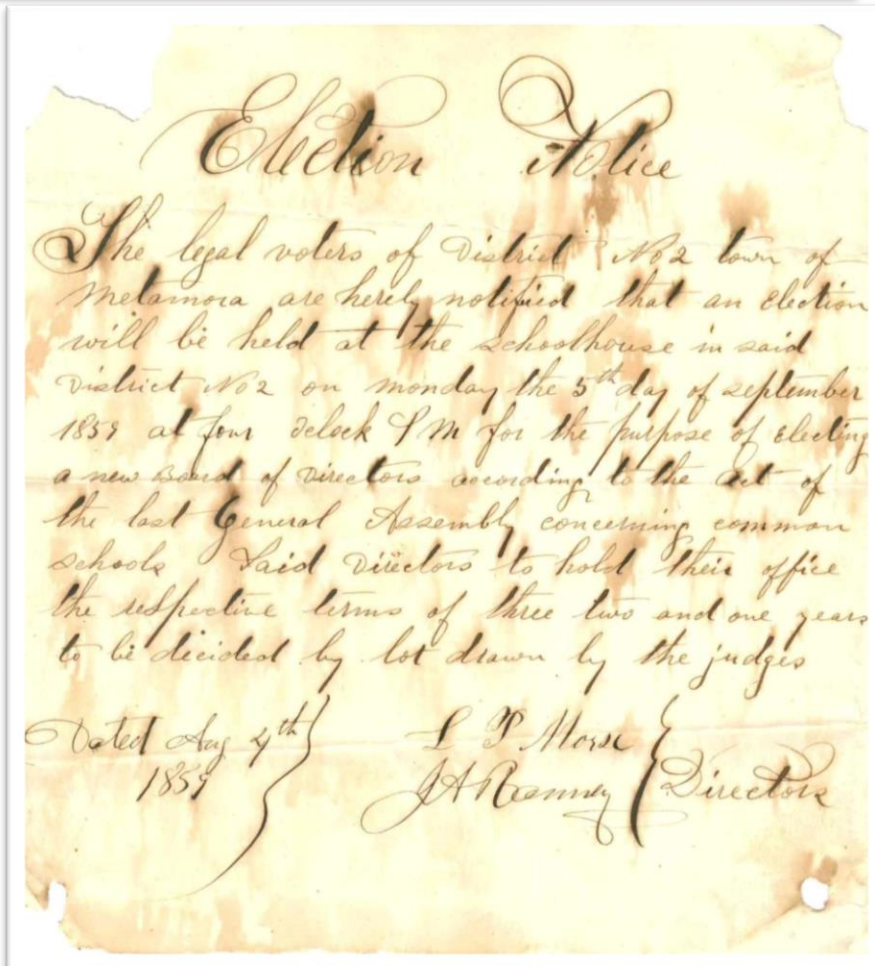 Election Notice
The legal voters of District No 2 town of
Metamora are hereby notified that an Election
will be held at the schoolhouse in said
District No 2 on monday the 5th day of september
1859 at four oclock P M for the purpose of Electing
a new Board of Directors according to the act of
the last General Assembly concerning common
schools Said Directors to hold their office
the respective terms of three two and one years
to be decided by lot drawn by the judges
Dated Aug 4th
1859
L P Morse
J A Ranney
Directors